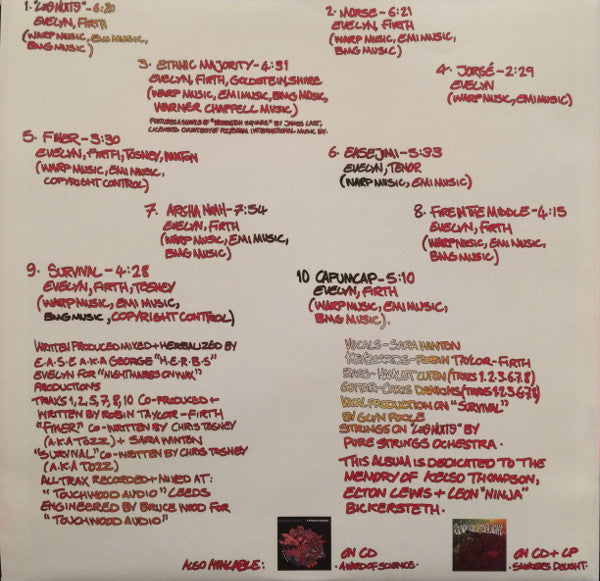 1. "LES NUITS" - 6:20
EVELYN, FIRTH
(WARP MUSIC, EMI MUSIC,
BMG MUSIC)
2. MORSE - 6:21
EVELYN, FIRTH
(WARP MUSIC, EMI MUSIC,
BMG MUSIC)
3. ETHNIC MAJORITY - 4:31
EVELYN, FIRTH, GOLDSTEIN, SHIRE
(WARP MUSIC, EMI MUSIC, BMG MUSIC,
WARNER CHAPPELL MUSIC)
FEATURES A SAMPLE OF "WASHINGTON SQUARE" BY JAMES LAST,
LICENSED COURTESY OF POLYGRAM INTERNATIONAL MUSIC BV.
4. JORSÉ - 2:29
EVELYN
(WARP MUSIC, EMI MUSIC)
5. FINER - 5:30
EVELYN, FIRTH, TOSHEY, WINTON
(WARP MUSIC, EMI MUSIC,
COPYRIGHT CONTROL)
6. EASEJIMI - 5:33
EVELYN, TENOR
(WARP MUSIC, EMI MUSIC)
7. ARGHA NOAH - 7:54
EVELYN, FIRTH
(WARP MUSIC, EMI MUSIC,
BMG MUSIC)
8. FIRE IN THE MIDDLE - 4:15
EVELYN, FIRTH
(WARP MUSIC, EMI MUSIC,
BMG MUSIC)
9. SURVIVAL - 4:28
EVELYN, FIRTH, TOSHEY
(WARP MUSIC, EMI MUSIC,
BMG MUSIC, COPYRIGHT CONTROL)
10 CAPUMCAP - 5:10
EVELYN, FIRTH
(WARP MUSIC, EMI MUSIC,
BMG MUSIC).
WRITTEN PRODUCED MIXED + HERBALIZED BY
E.A.S.E A.K.A GEORGE "H.E.R.B.S"
EVELYN FOR "NIGHTMARES ON WAX"
PRODUCTIONS
TRAX 1, 2, 5, 7, 8, 10 CO-PRODUCED +
WRITTEN BY ROBIN TAYLOR - FIRTH
"FINER" CO-WRITTEN BY CHRIS TOSHEY
(A.K.A TOZZ) + SARA WINTON
"SURVIVAL" CO-WRITTEN BY CHRIS TOSHEY
(A.K.A TOZZ)
ALL TRAX RECORDED + MIXED AT:
"TOUCHWOOD AUDIO" LEEDS
ENGINEERED BY BRUCE WOOD FOR
"TOUCHWOOD AUDIO"
VOCALS - SARA WINTON
KEYBOARDS - ROBIN TAYLOR-FIRTH
BASS - HAMLET LUTON (TRAX 1.2.3.6.7.8)
GUITAR - CHRIS DAWKINS (TRAX 1.2.3.6.7.8)
VOCAL PRODUCTION ON "SURVIVAL"
BY GLYN POOLE
STRINGS ON "LES NUITS" BY
PURE STRINGS OCHESTRA.
THIS ALBUM IS DEDICATED TO THE
MEMORY OF KELSO THOMPSON,
ELTON LEWIS + LEON "NINJA"
BICKERSTETH.
ALSO AVAILABLE:
ON CD
· A WORD OF SCIENCE ·
ON CD + LP
· SMOKERS DELIGHT ·